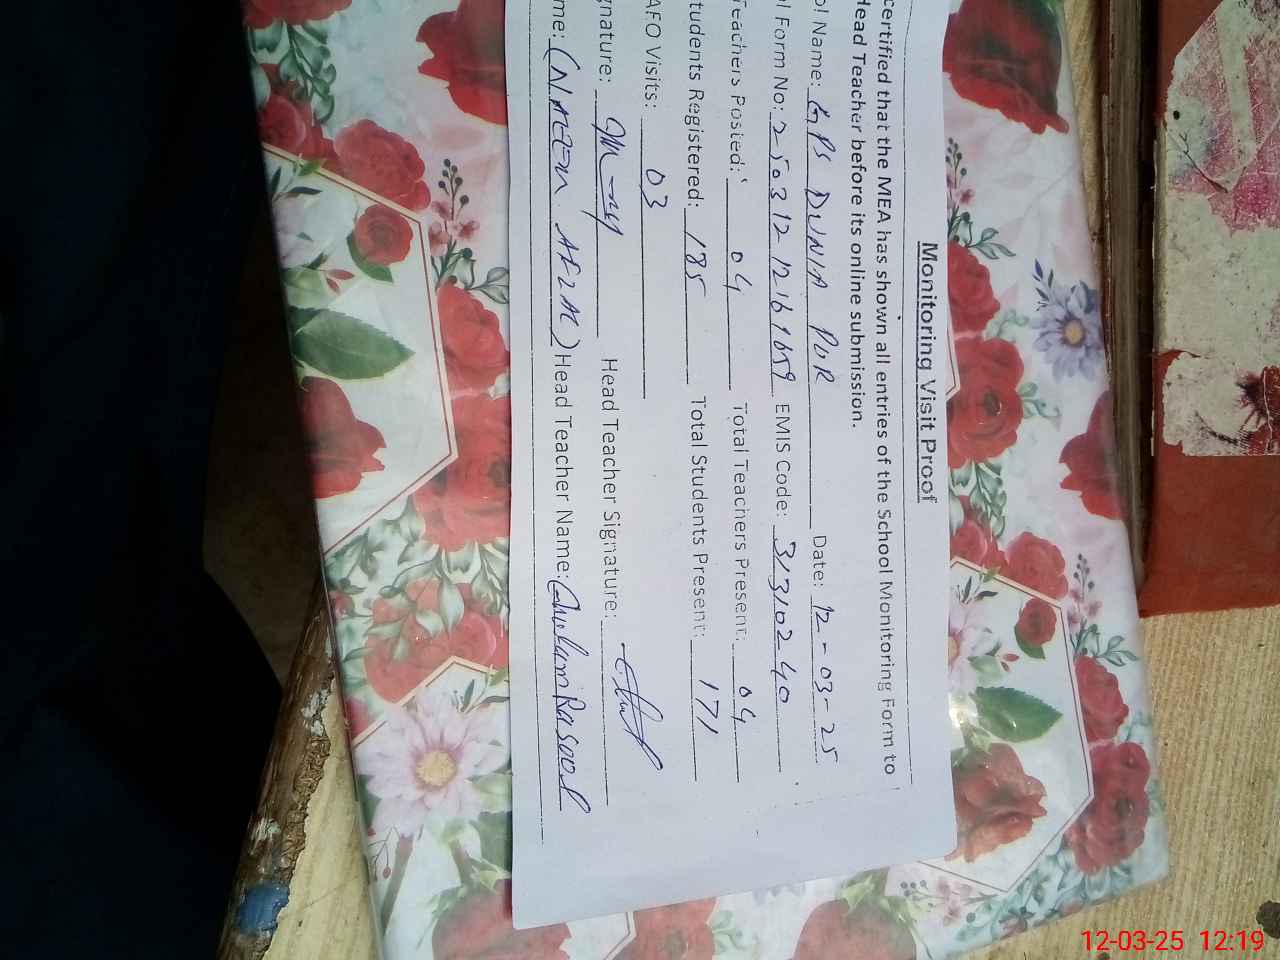 Monitoring Visit Proof
certified that the MEA has shown all entries of the School Monitoring Form to
Head Teacher before its online submission.
ol Name: GPS DUNIA PUR Date: 12-03-25
ol Form No: 2503121216 EMIS Code: 31310240
Teachers Posted: 04 Total Teachers Present: 04
tudents Registered: 185 Total Students Present: 171
AFO Visits: 03
gnature: Head Teacher Signature:
me: ( AFZAL) Head Teacher Name: Ghulam Rasool
12-03-25 12:19